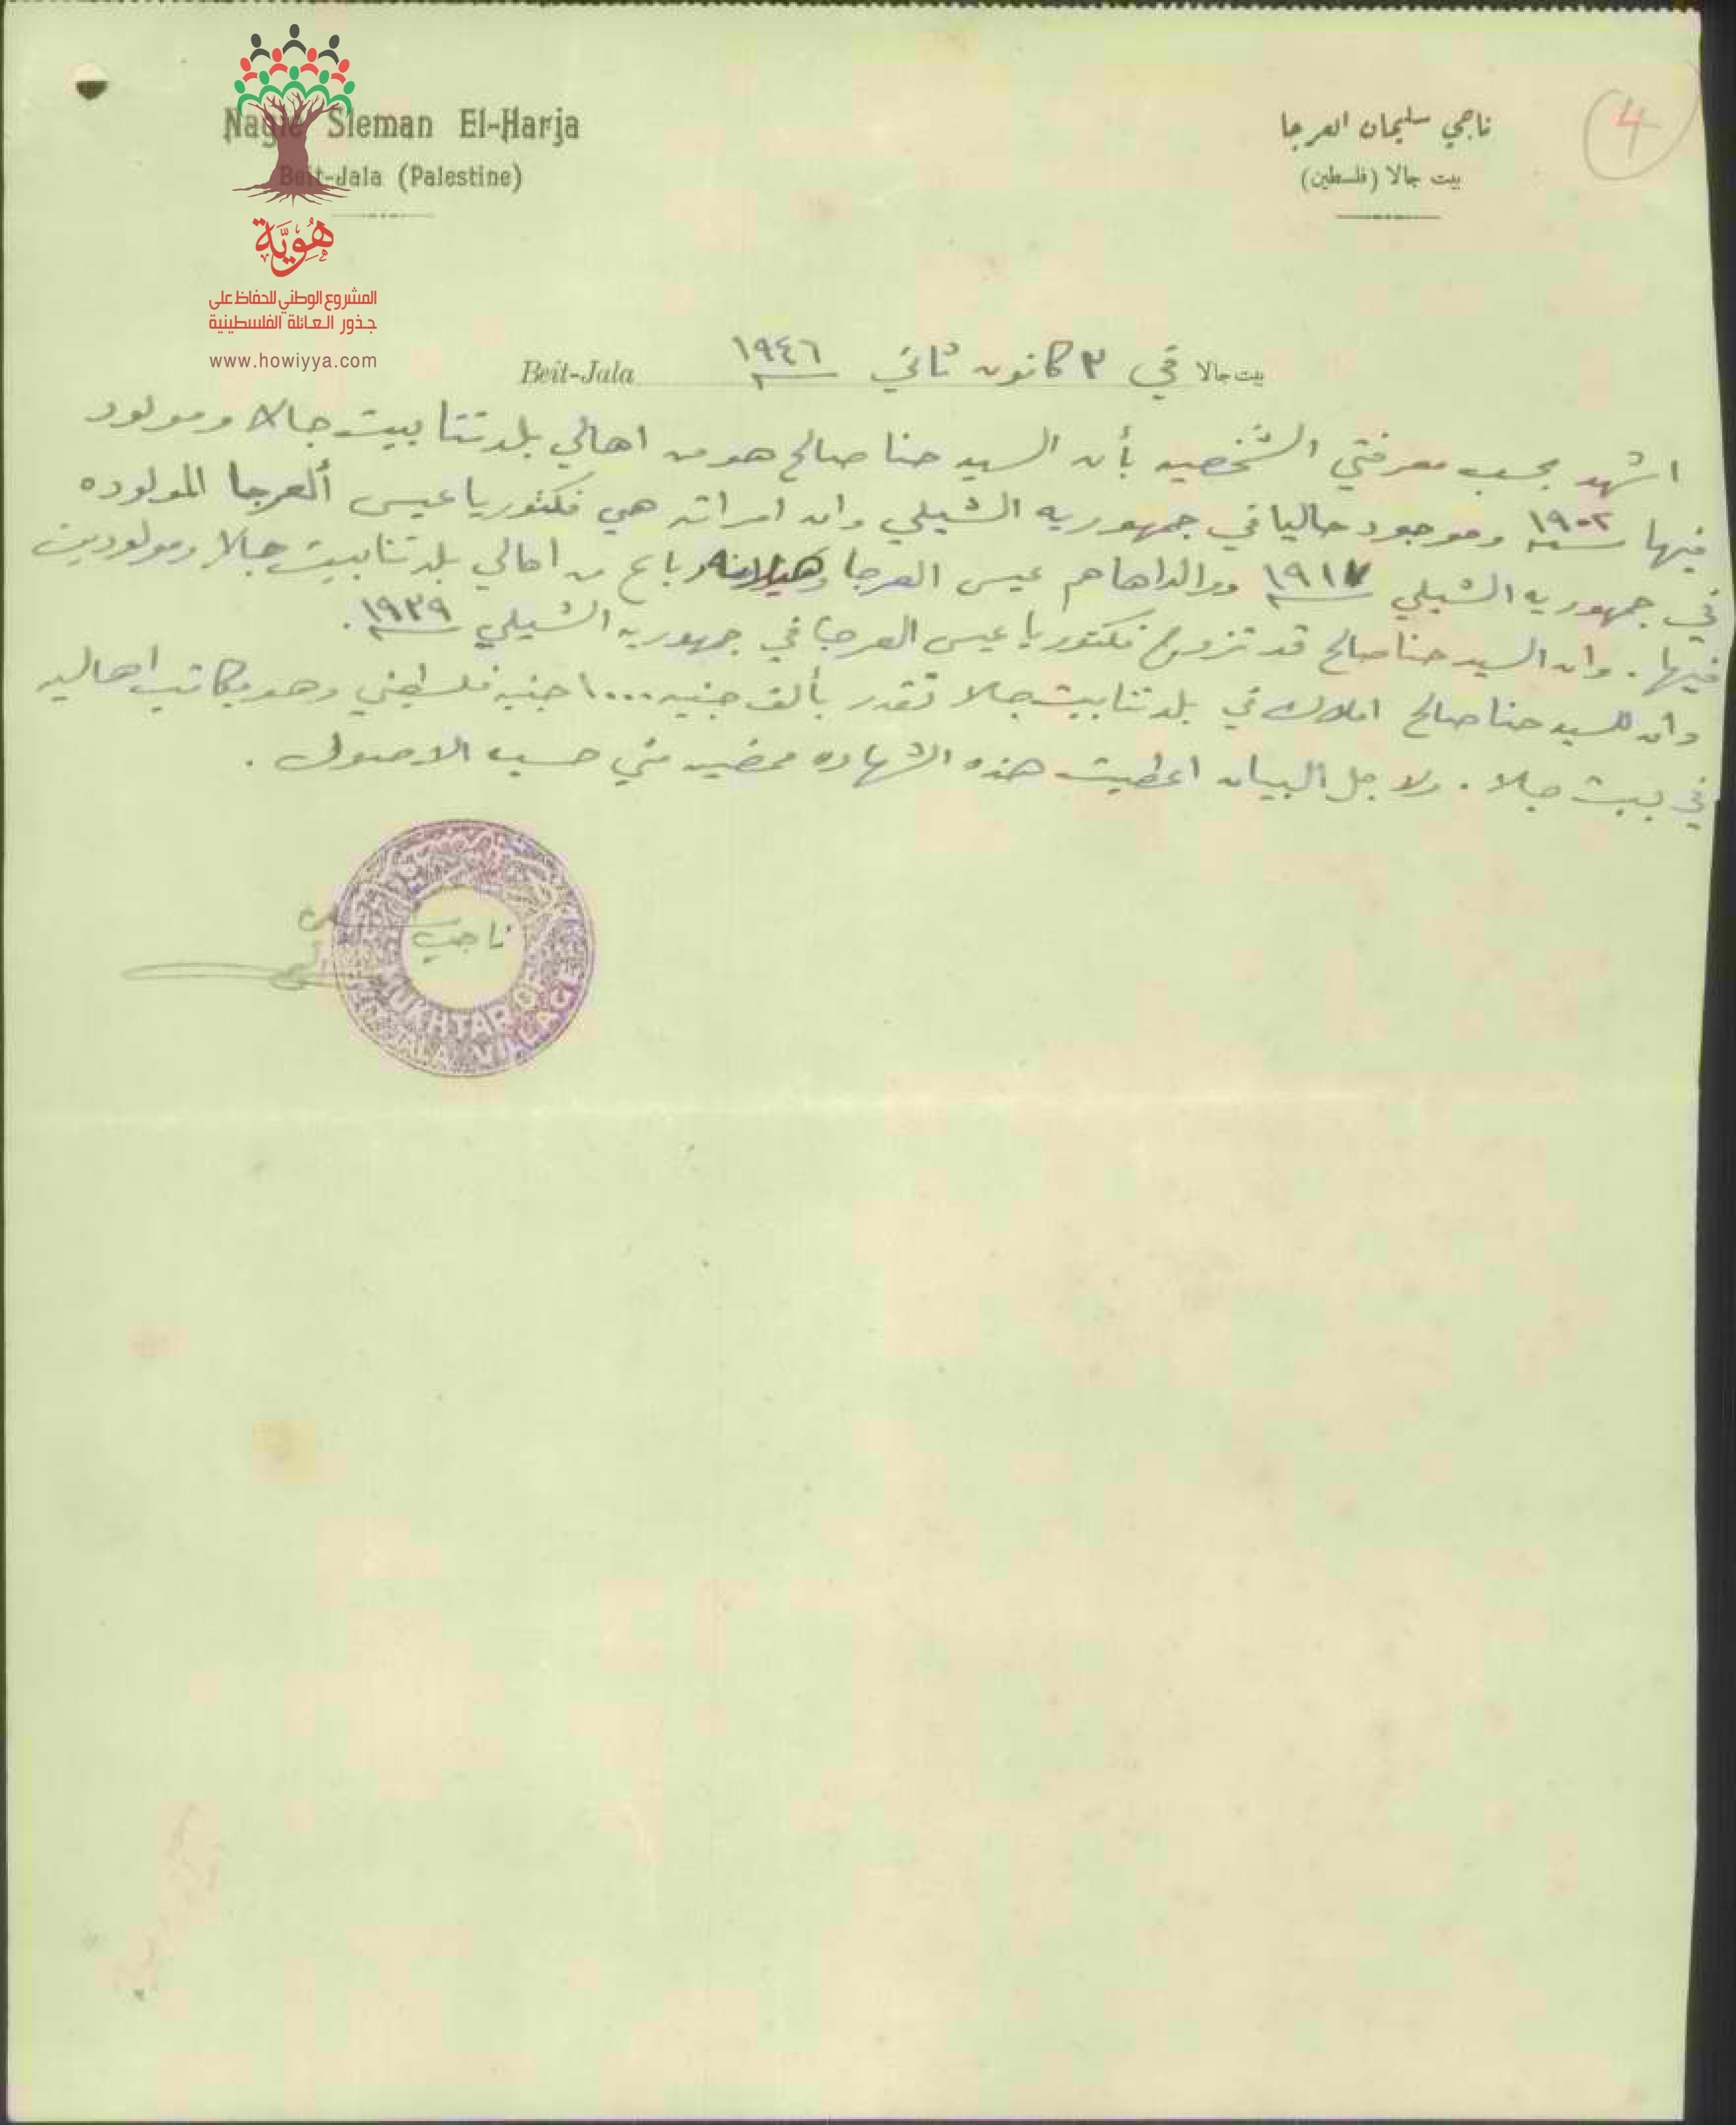 Nagie Sleman El-Harja
Beit-Jala (Palestine)
ناجي سليمان العرجا
بيت جالا (فلسطين)
4
هُوِيَّة
المشروع الوطني للحفاظ على
جذور العائلة الفلسطينية
www.howiyya.com
بيت جالا في ٣ كانون ثاني سنة ١٩٤٦ Beit-Jala
اشهد بحسب معرفتي الشخصيه بأن السيد حنا صالح هو من اهالي بلدتنا بيت جالا ومولود
فيها سنة ١٩٠٢ وموجود حاليا في جمهوريه الشيلي وان امراته هي فكتوريا عيسى العرجا المولوده
في جمهوريه الشيلي سنة ١٩١٧ ووالداها هم عيسى العرجا وهيلانه رباع من اهالي بلدتنا بيت جالا ومولودين
فيها. وان السيد حنا صالح قد تزوج فكتوريا عيسى العرجا في جمهوريه الشيلي سنة ١٩٣٩.
وان للسيد حنا صالح املاك في بلدتنا بيت جالا تقدر بألف جنيه ١٠٠٠ جنيه فلسطيني وهو يكاتب اهاليه
في بيت جالا. ولاجل البيان اعطيت هذه الشهاده ممضيه مني حسب الاصول.
ناجي
MUKHTAR OF
BEIT JALA VILLAGE